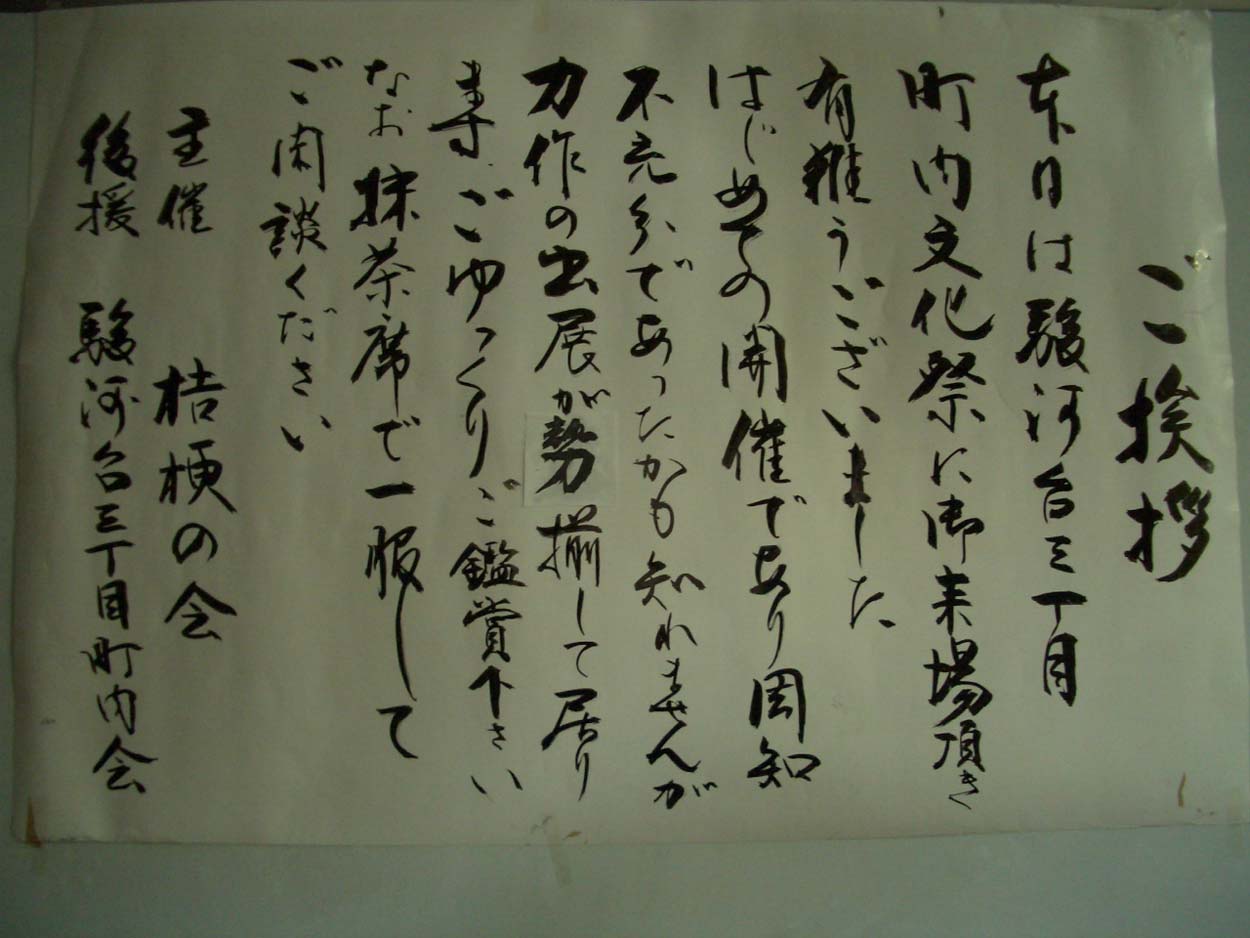 ご挨拶
本日は駿河台三丁目
町内文化祭に御来場頂き
有難うございました
はじめての開催であり周知
不充分であったかも知れませんが
力作の出展が勢揃して居り
ます。ごゆっくりご鑑賞下さい
なお抹茶席で一服して
ご閑談ください
主催 桔梗の会
後援 駿河台三丁目町内会